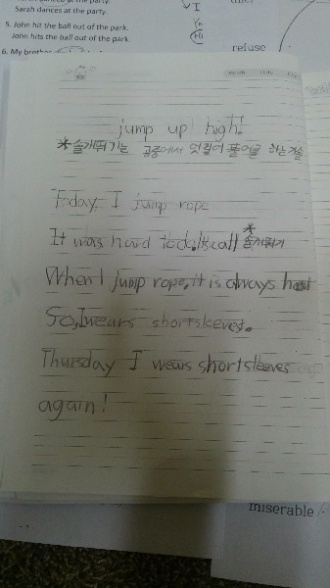 Sarah dances at the party.
5. John hit the ball out of the park.
John hits the ball out of the park.
6. My brother
I
Hi
refuse
jump up high!
*솔개뛰기는 공중에서 엇걸어 풀어를 하는 기술
Today, I jump rope
It was hard to do. It's call *솔개뛰기
When I jump rope, it is always hot
So, I wears short sleeves.
Thursday I wears short sleeves
again!
miserable